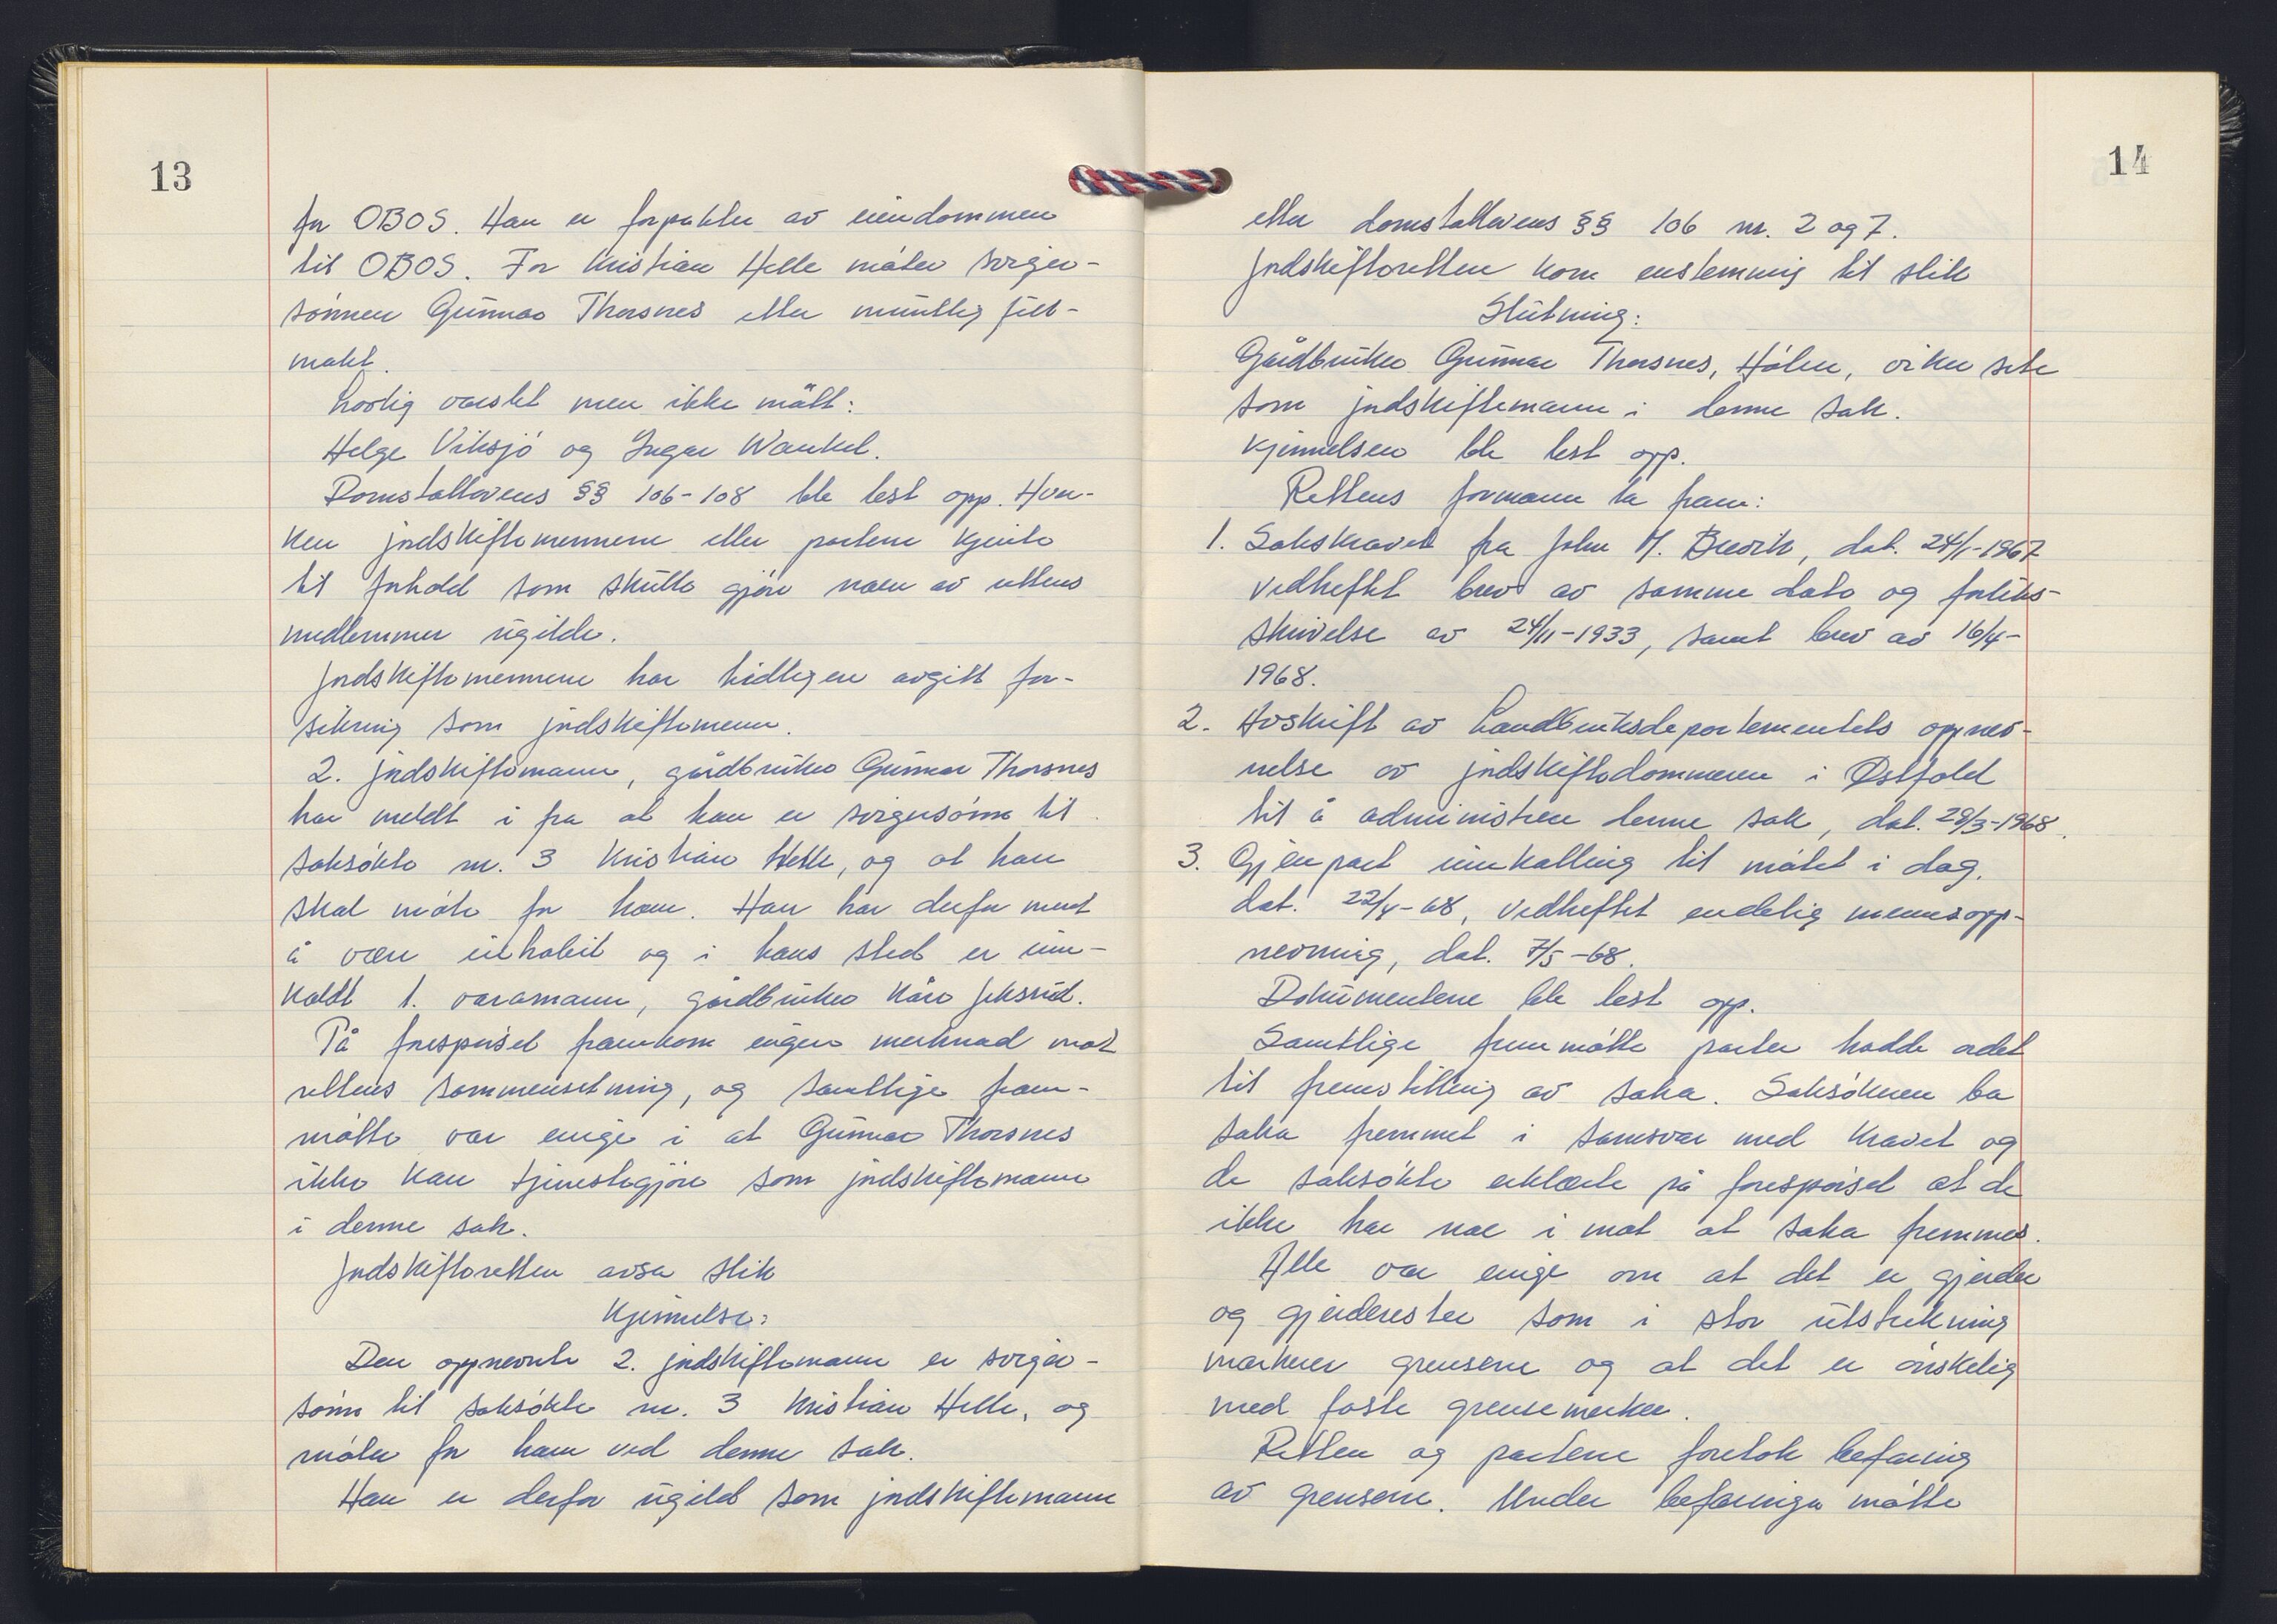 13
for OBOS. Han er forpakter av eiendommen
til OBOS. For Kristian Helle møter sviger-
sønnen Gunnar Thorsnes etter muntlig full-
makt.
Lovlig varslet men ikke møtt:
Helge Viksjø og Ingar Wankel.
Domstollovens §§ 106-108 ble lest opp. Hver-
ken jordskiftemennene eller partene kjente
til forhold som skulle gjøre noen av rettens
medlemmer ugilde.
Jordskiftemennene har tidligere avgitt for-
sikring som jordskiftemenn.
2. jordskiftemann, gårdbruker Gunnar Thorsnes
har meldt i fra at han er svigersønn til
saksøkte nr. 3 Kristian Helle, og at han
skal møte for ham. Han har derfor ment
å være inhabil og i hans sted er inn-
kaldt 1. varamann, gårdbruker Kåre Jeksrud.
På forespørsel framkom ingen merknad mot
rettens sammensetning, og samtlige fram-
møtte var enige i at Gunnar Thorsnes
ikke kan tjenestegjøre som jordskiftemann
i denne sak.
Jordskifteretten avsa slik
Kjennelse:
Den oppnevnte 2. jordskiftemann er sviger-
sønn til saksøkte nr. 3 Kristian Helle, og
møter for ham ved denne sak.
Han er derfor ugild som jordskiftemann
14
etter domstollovens §§ 106 nr. 2 og 7.
Jordskifteretten kom enstemmig til slik
Slutning:
Gårdbruker Gunnar Thorsnes, Hølen, viker sete
som jordskiftemann i denne sak.
Kjennelsen ble lest opp.
Rettens formann la fram:
1. Sakskravet fra John M. Brevik, dat. 24/1-1967
vedheftet brev av samme dato og forliks-
skrivelse av 24/11-1933, samt brev av 16/4-
1968.
2. Avskrift av Landbruksdepartementets oppnev-
nelse av jordskiftedommeren i Østfold
til å administrere denne sak, dat. 29/3-1968.
3. Gjenpart innkalling til møtet i dag.
dat. 22/4-68, vedheftet endelig mennsopp-
nevning, dat. 7/5-68.
Dokumentene ble lest opp.
Samtlige frammøtte parter hadde ordet
til fremstilling av saka. Saksøkeren ba
saka fremmet i samsvar med kravet og
de saksøkte erklærte på forespørsel at de
ikke har noe i mot at saka fremmes.
Alle var enige om at det er gjerder
og gjerderester som i stor utstrekning
markerer grensene og at det er ønskelig
med faste grensemerker.
Retten og partene foretok befaring
av grensene. Under befaringa møtte